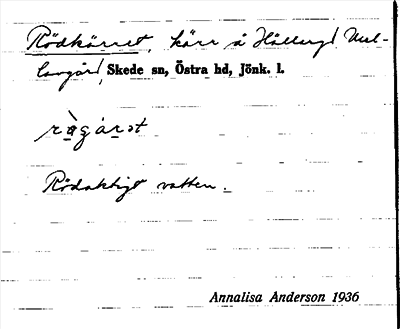 Rödkärret, kärr å Hålleryd Mel-
langård, Skede sn, Östra hd, Jönk. l.
Rödaktigt vatten.
Annalisa Anderson 1936